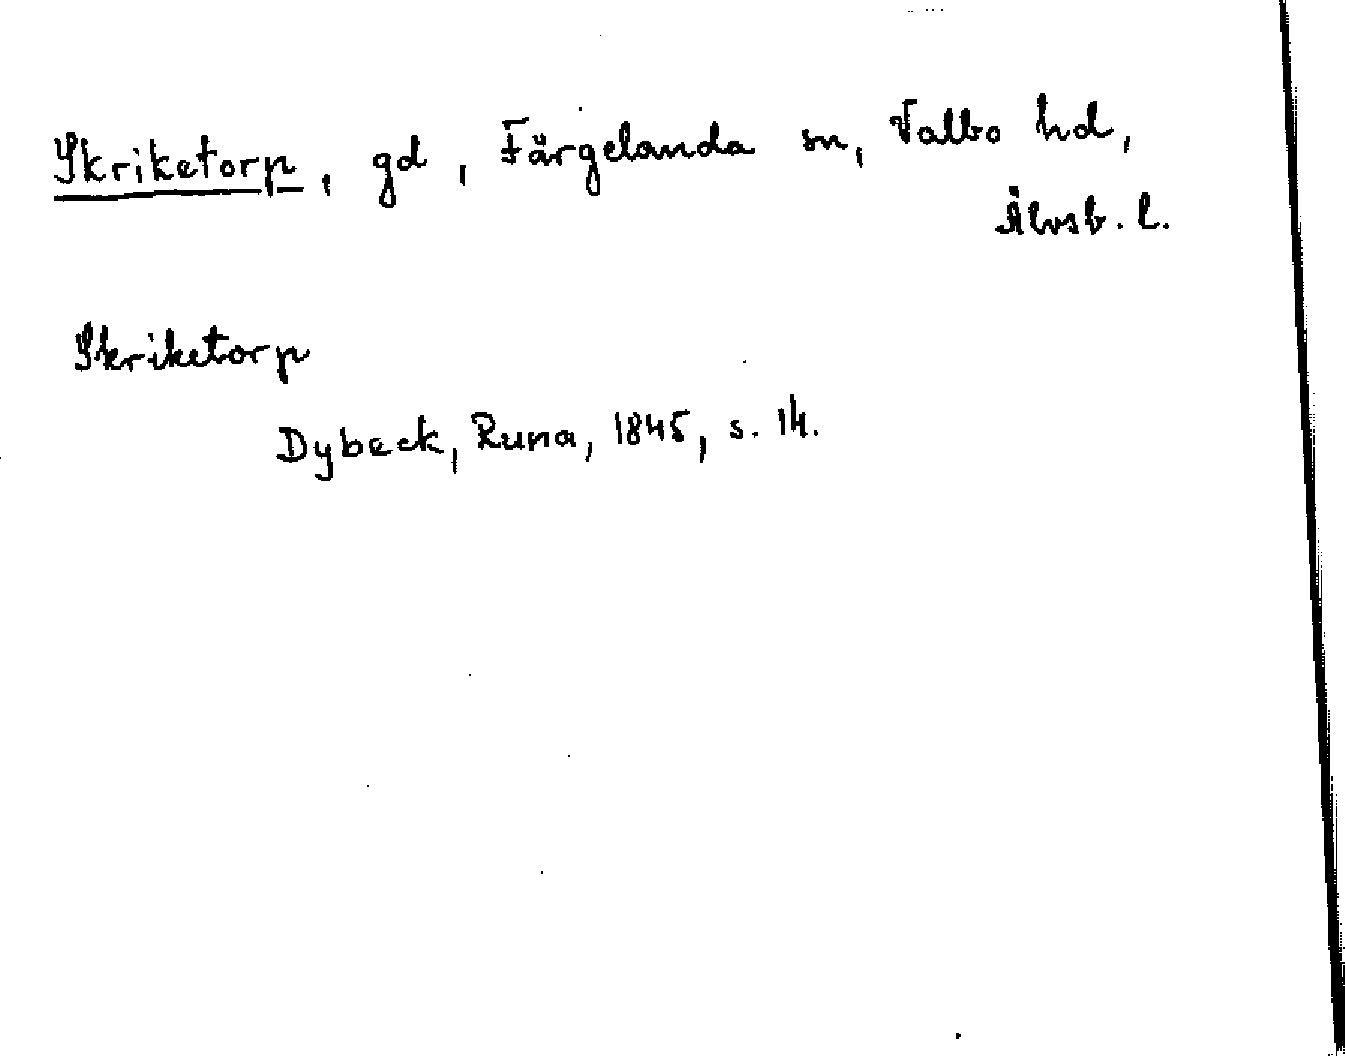 Skriketorp, gd, Färgelanda sn, Valbo hd,
Älvsb. l.
Skriketorp
Dybeck, Runa, 1845, s. 14.